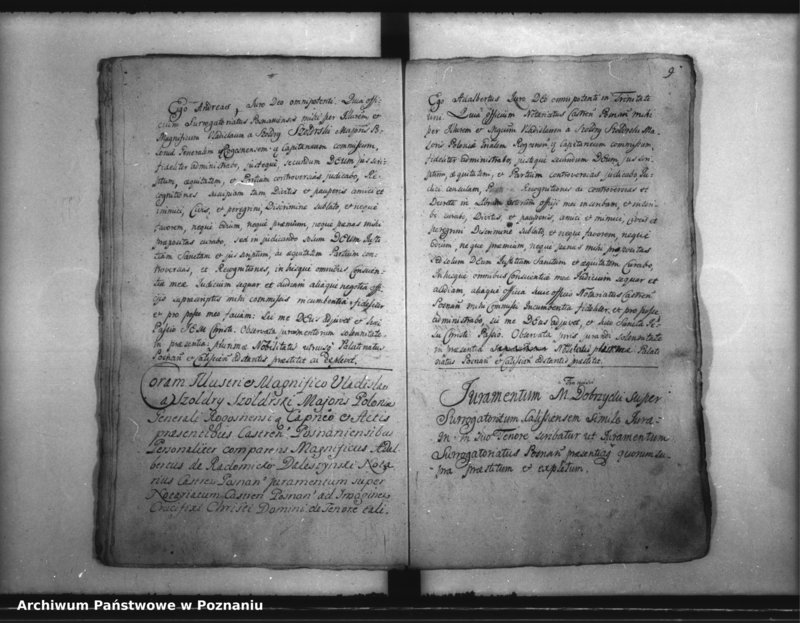 Ego Andreas, Juro Deo omnipotenti. Quia offi-
cium Surrogatoratus Posnaniensis mihi per Illustrem et
Magnificum Vladislaum a Szoldry Szoldrski Majoris Po-
loniæ Generalem Rogosnensem q Capitaneum commissum,
fideliter administrabo, justeque secundum DEum jus scri-
ptum, æquitatem, et Partium controversias judicabo, Re-
cognitiones suscipiam tam Divitis et pauperis amici et
inimici, Civis, et peregrini, Discrimine sublato, et neque
favorem, neque odium, neque præmium, neque pænas mihi
præpositas curabo, sed in judicando solum DEum Jus-
titiam Sanctam et jus scriptum, ac æquitatem Partium con-
troversias, et Recognitiones, in hisque omnibus Conscien-
tiæ meæ Judicium sequar et audiam aliaque negotia offi-
cij suprascriptis mihi commissis incumbentia fideliter
et pro posse meo faciam: Sic me DEus adjuvet et haec
Passio JESu Christi. Observata juramentorum solennitate
in præsentia plurimæ Nobilitatis utriusq Palatinatus
Posnan et Calisien adstantis præstitit ac deplevit.
Coram Illustri et Magnifico Vladislao
a Szoldry Szoldrski Majoris Poloniæ
Generali Rogosnensi q Capneo et Actis
præsentibus Castren Posnaniensibus
Personaliter comparens Magnificus Adal-
bertus de Radomicko Daleszynski Nota-
rius Castren Posnan juramentum super
Notariatum Castren Posnan ad Imaginem
Crucifixi Christi Domini de Tenore tali.
9
Ego Adalbertus Juro DEo omnipotenti in Trinitate
uni. Quia officium Notariatus Castren Posnan mihi
per Illustrem et Magnificum Vladislaum a Szoldry Szoldrski Ma-
joris Poloniæ Gnalem Rogosnen q Capitaneum commissum,
fideliter administrabo, justaque secundum DEum, jus scri-
ptum, æquitatem, et Partium controversias judicabo Ju-
dici consulam, Recognitiones ac controversias et
Decreta in Librum
curabo, Divitis, et pauperis, amici et inimici, civis et
peregrini Discrimine Sublato, et neque favorem, neque
odium, neque præmium, neque pænas mihi
sed solum DEum Justitiam Sanctam et æquitatem Curabo,
In hisque omnibus Conscientiæ meæ Judicium sequar et
audiam, aliaque officia huic officio Notariatus Castren
Posnan mihi Commisso Incumbentia fideliter, et pro posse
administrabo, sic me DEus adjuvet, et haec Sancta JE-
Su Christi Passio. Observata jurandi solennitate
in præsentia Nobilitatis plurimæ Palati-
natus Posnan et Calisien adstantis præstitit.
Juramentum M. Dobrzycki super
Surrogatoratum Calissiensem Simile Jura-
Tenore scribatur ut Juramentum
Surrogatoratus Posnan præsentibus quorum su-
pra præstitum et expletum.
Archiwum Państwowe w Poznaniu